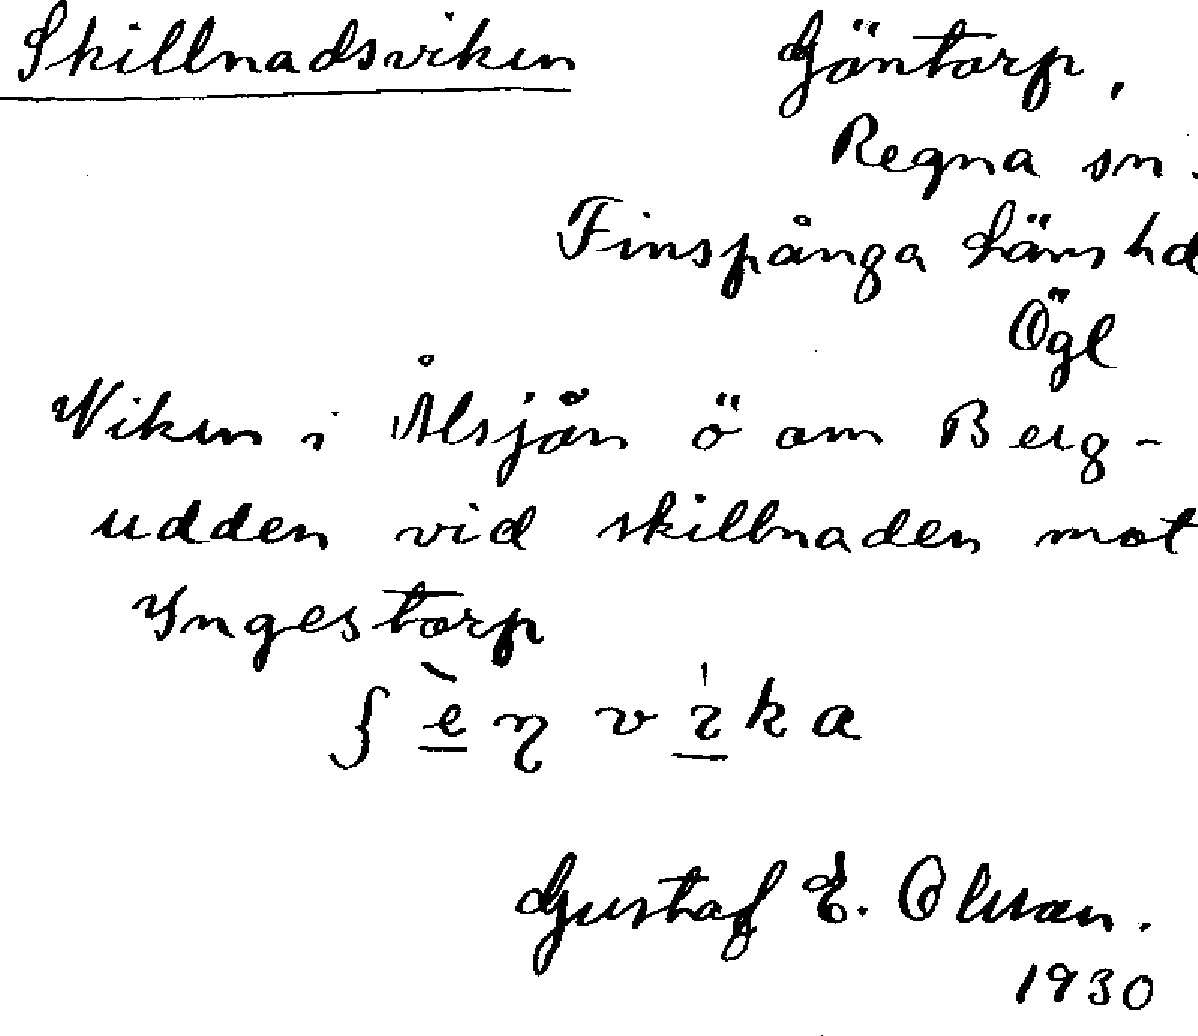 Skillnadsviken
Göntorp,
Regna sn.
Finspånga läns hd
Ögl
Viken i Ålsjön ö om Berg-
udden vid skillnaden mot
Yngestorp
Gustaf E. Olsson.
1930